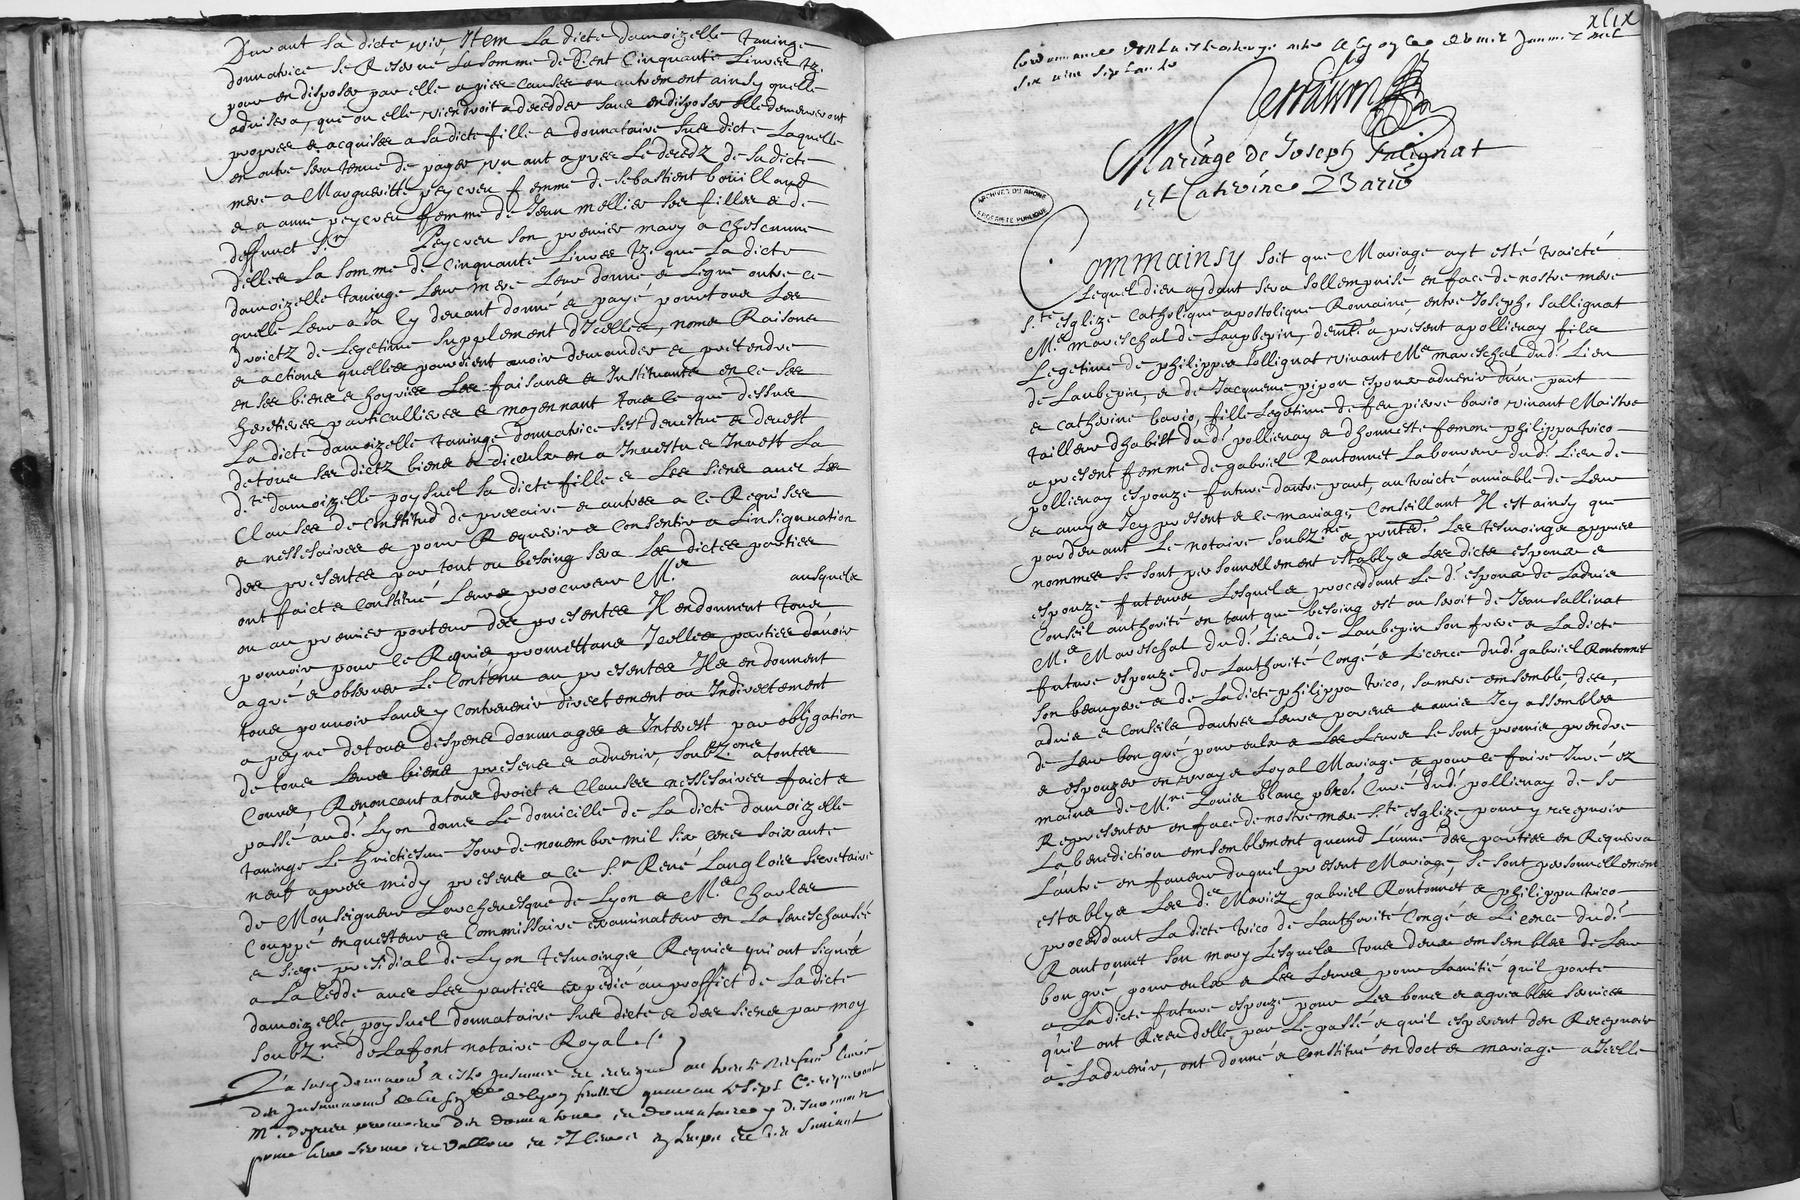 Durant sa dicte vie, Item la dicte damoizelle Taninge
donnatrice se Reserve la somme de Cent Cinquante Livres tz.
pour en disposer par elle a pies causes ou autrement ainsy quelle
advisera, que ou elle viendroit a decedder sans en disposer elle demeureront
propres & acquises a sa dicte fille & donnataire sus dicte Laquelle
en outre sera tenue de payer un ant apres Le decedz de sa dicte
mere a Margueritte peycreu femme de sebastient bouilland
& a anne peycreu femme de Jean mellier ses filles & de
deffunct Sr peycreu son premier mary a chescunne
delles La somme de Cinquante Livres tz. que La dicte
damoizelle taninge Leur mere Leur donne & Legue outre ce
quelle Leur a Ja cy devant donné & payé pour tous Les
droictz de Legetime supplement d'Icelles, noms Raisons
& actions quelles pourroient avoir demander & prétendre
en ses biens & hoyries Les faisant & Instituant en ce ses
heretieres particullieres & moyennant tout ce que dessus
La dicte damoizelle taninge donnatrice s'est devestue & devest
de tous ses dictz biens & diceulx en a Investu & Invest La
d.te damoizelle poysuel sa dicte fille & Les siens avec Les
Clauses de Constitud de precaire & autres a ce Requises
& nessesaires & pour Requerir & Consentir a L'insignuation
des presentes par tout ou besoing sera Les dictes parties
ont faict & Constitué Leurs procureur M.e ausquels
ou au premier porteur des presentes Il en donnent tous
pouvoir pour ce Requis promettans Icelles parties d'avoir
a gré & observer Le Contenu au presentes Ils en donnent
tous pouvoir sans y Contrevenir directement ou Indirectement
a peyne de tous despens dommages & Interest par obligation
de tous Leurs biens presens & advenir, soubz.ons a toutes
Cours, Renonçant a tous droict & Clauses nessesaires faict &
passé aud. Lyon dans Le domicille de La dicte damoizelle
taninge Le huictiesme Jour de novembre mil six cens soixante
neuf apres midy presens a ce S.r René Langlois secretaire
de Monseigneur L'archevesque de Lyon & M.e Charles
Couppé enquesteur & Commissaire examinateur en La seneschaulcé
& siege presidial de Lyon tesmoings Requis qui ont signés
a La Cedde avec Les parties expedié au proffict de La dicte
damoizelle, poysuel donnataire sus dicte & des siens par moy
soubz.né delafont notaire Royal.
xlix
Mariage de Joseph Salignat
et Catherine Bario
ARCHIVES DU RHONE
PROPRIETE PUBLIQUE
Comm'ainsy soit que Mariage ayt esté traicté
Lequel dieu aydant sera sollempnisé en face de nostre mere
s.te esglize catholique apostolique Romaine entre Joseph Sallignat
M.e mareschal de Laubepin, demt. a présent a pollienay fils
Legetime de philippes sallignat vivant M.e mareschal dud. Lieu
de Laubepin, & de Jacqueme pipon espoux advenir d'une part
& catherine bario, fille Legetime de feu pierre bario vivant Maistre
tailleur dhabist dud. pollienay & dhonneste femme philippa trico
a present femme de gabriel Rantonnet Laboureur dud. Lieu de
pollienay espouze future dautre part, au traicté amiable de Leur
& amys Icy present & ce mariage, Conseillant Il est ainsy que
pardevant Le notaire soubz.né & present Les tesmoings appres
nommés se sont personnellement establys Les dicts espoux &
espouze futeurs Lesquels proceddant Le d. espoux de Ladvis
Conseil authorité en tant que besoing est ou seroit de Jean Sallinat
M.e Mareschal dud. Lieu de Laubepin son frere & La dicte
future espouze de Lauthorité Congé & Licence dud. gabriel Rantonnet
son beaupere & de La dicte philippa trico, sa mere ensemble des
advis & Conseils dautres Leurs parens & amis Icy assembles
de Leur bon gré pour eulx & Les Leurs se sont promis prendre
& espouzer en vray & Loyal Mariage & pour ce faire Juré es
mains de M.re Louis blanc pbre. Curé dud. pollienay de se
Représenter en face de nostre mere s.te esglize pour y recepvoir
La benediction ensemblement quand L'une des parties en Requerra
L'autre en faveur duquel présent Mariage, se sont personnellement
establys Les d. Mariez gabriel Rantonnet & philippa trico
proceddant La dicte trico de Lauthorité Congé & Licence dud.
Rantonnet son mary Lesquels tous deux ensembles de Leur
bon gré, pour eulx & Les Leurs pour Lamitié qu'il porte
a La dicte future espouze pour Les bons & agreables services
qu'il ont Receu delle par Le passé & quil esperent den Recepvoir
a Ladvenir, ont donné & Constitué en doct & mariage a Icelle